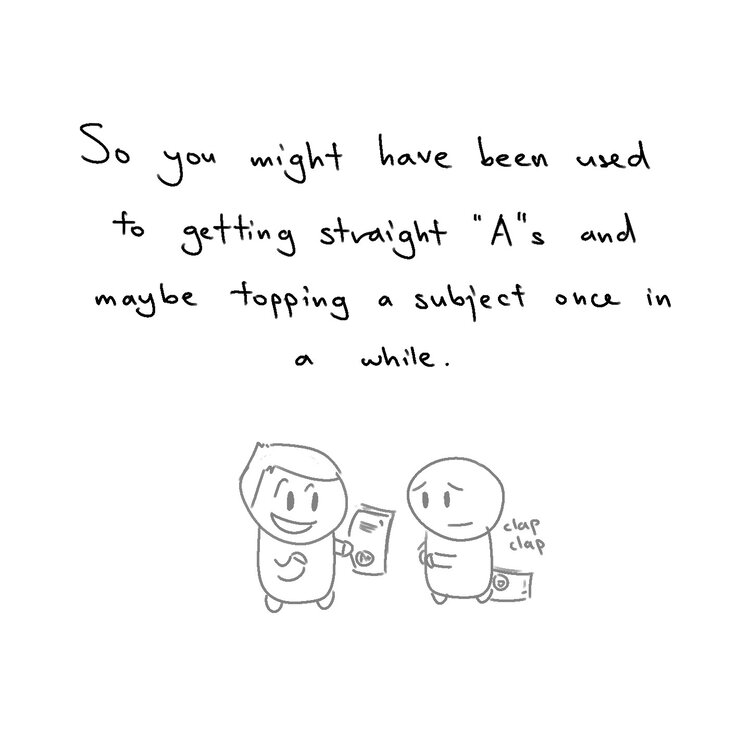 So you might have been used
to getting straight "A"s and
maybe topping a subject once in
a while.
clap
clap